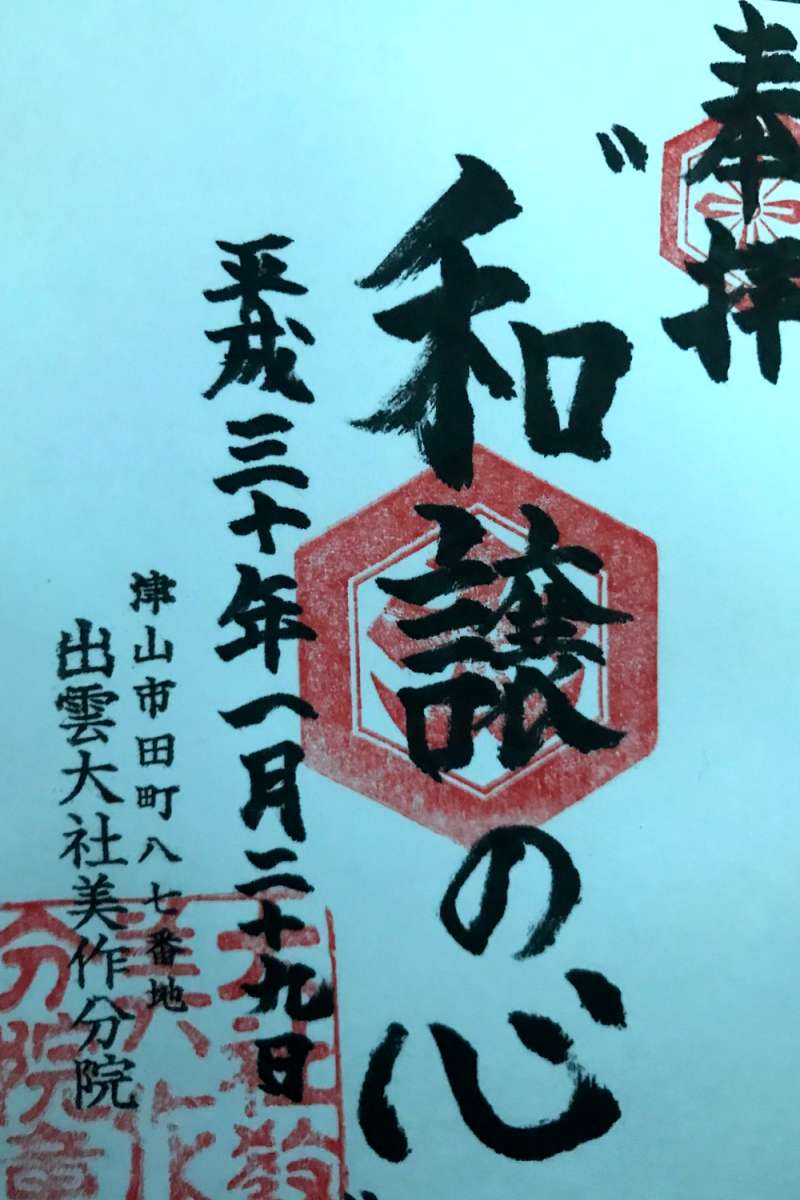 奉拝
〝和譲の心〟
平成三十年一月二十九日
津山市田町八七番地
出雲大社美作分院